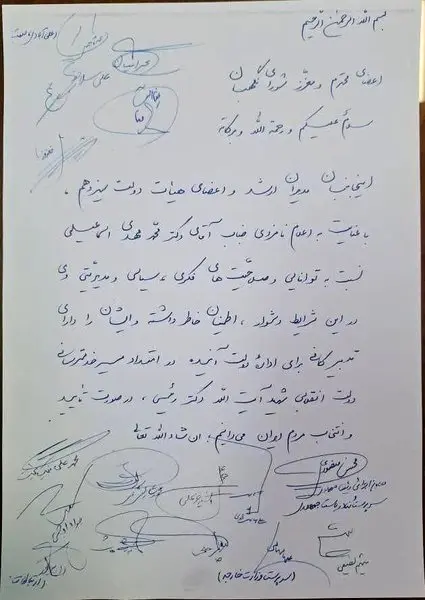 بسم الله الرحمن الرحیم
اعضای محترم و معزز شورای نگهبان
سلام علیکم و رحمة الله و برکاته
اینجانبان مدیران ارشد و اعضای هیات دولت سیزدهم،
با عنایت به اعلام نامزدی جناب آقای دکتر محمد مهدی اسماعیلی
نسبت به توانایی و صلاحیت های فکری، سیاسی و مدیریتی وی
در این شرایط دشوار، اطمینان خاطر داشته و ایشان را دارای
تدبیر کافی برای اداره دولت آینده در امتداد مسیر خدمترسانی
دولت انقلابی شهید آیت الله دکتر رئیسی، در صورت تأیید
و انتخاب مردم ایران می‌دانیم؛ ان شاءالله تعالی
محسن منصوری
معاون اجرایی رئیس جمهور
سرپرست نهاد ریاست جمهوری
(سرپرست وزارت خارجه)
(ارتباطات)